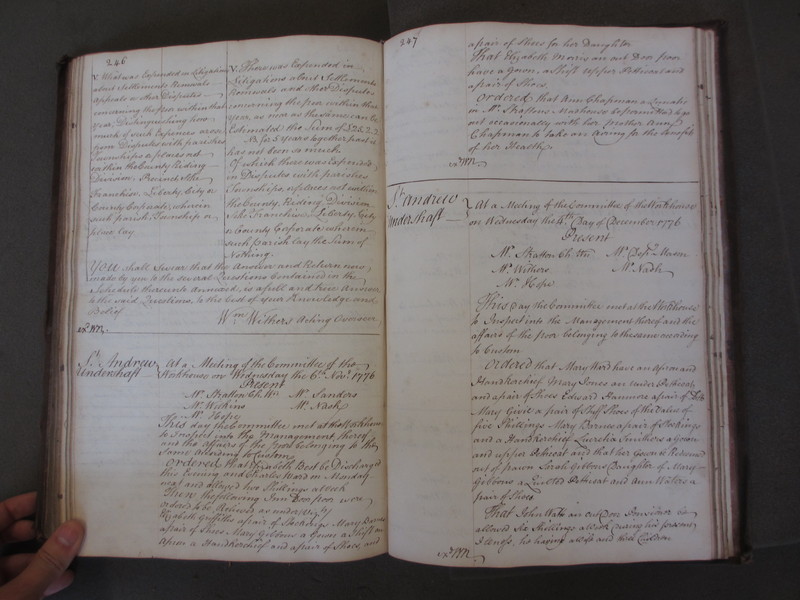 246
V. What was Expended in Litigations
about Settlements Removals
appeals or other Disputes
concerning the poor within that
Year, Distinguishing how
much of such Expences arose
from Disputes with parishes
Townships or places not
within the County Riding
Division, Precinct, Shire
Franchise, Liberty, City or
County Corporate, wherein
such parish Township or
place lay.
V. There was Expended in
Litigations about Settlements
Removals and other Disputes
concerning the poor within this
year as near as the same can be
Estimated the Sum of
for 5 years together past it
has not been so much
Of which there was Expended
in Disputes with parishes
Townships or places not within
the County, Riding Division
Shire Franchise, Liberty, City
or County Corporate wherein
such parish lay the Sum of
Nothing.
YOU shall Swear that the Answer and Return now
made by you to the several Questions Contained in the
Schedule thereunto annexed, is a full and true Answer
to the said Questions, to the best of your Knowledge and
Belief
Wm Withers Acting Overseer
St. Andrew
Undershaft
At a Meeting of the Committee of the
Workhouse on Wednesday the 6th Novr. 1776
Present
Mr. Skatton Ch. Wn Mr. Sanders
Mr. Wilkins Mr. Nash
Mr. Hope
This day the Committee met at the Workhouse
to Inspect into the Management thereof
and the affairs of the poor belonging to the
same according to Custom
Ordered that Elizabeth Best be Discharged
this Evening and Charles Ward on Monday
next and allowed two Shillings a Week
Then the following Inn Door poor were
ordered to be Relieved as under vizt
Elizabeth Griffiths a pair of Stockings Mary Barnes
a pair of Shoes Mary Gibbons a Gown a Shift an
Apron a Handkerchief and a pair of Shoes, and
247
a pair of Shoes for her Daughter
That Elizabeth Morris an out Door poor
have a Gown, a Shift upper Petticoat and
a pair of Shoes.
Ordered that Ann Chapman a Lunatic
in Mr. Stratton's Madhouse be permitted to go
out occasionally with her Mother Ann
Chapman to take an Airing for the benefit
of her Health
St. Andrew
Undershaft
At a Meeting of the Committee of the Workhouse
on Wednesday the 4th Day of December 1776
Present
Mr. Skatton Ch. Wn Mr. Depy. Mason
Mr. Withers Mr. Nash
Mr. Hope
This Day the Committee met at the Workhouse
to Inspect into the Management thereof and the
affairs of the poor belonging to the same according
to Custom
Ordered that Mary Ward have an Apron and
Handkerchief Mary Jones an under Petticoat
and a pair of Shoes Edward Hanmore a pair of
Mary Givin a pair of Stuff Shoes of the value of
five Shillings Mary Barnes a pair of Stockings
and a Handkerchief Lucretia Smithers a Gown
and upper Petticoat and that her Gown be Redeemed
out of pawn Sarah Gibbons Daughter of Mary
Gibbons a Quilted Petticoat and Ann Waters a
pair of Shoes
That John Watts an out Door Pensioner be
allowed Six Shillings a Week during his present
Illness, he having a Wife and three Children